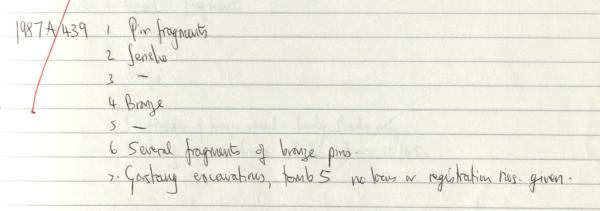 1987A/439 1 Pin fragments
2 Jericho
3 –
4 Bronze
5 –
6 Several fragments of bronze pins.
7. Garstang excavations, tomb 5 no locus or registration nos. given.